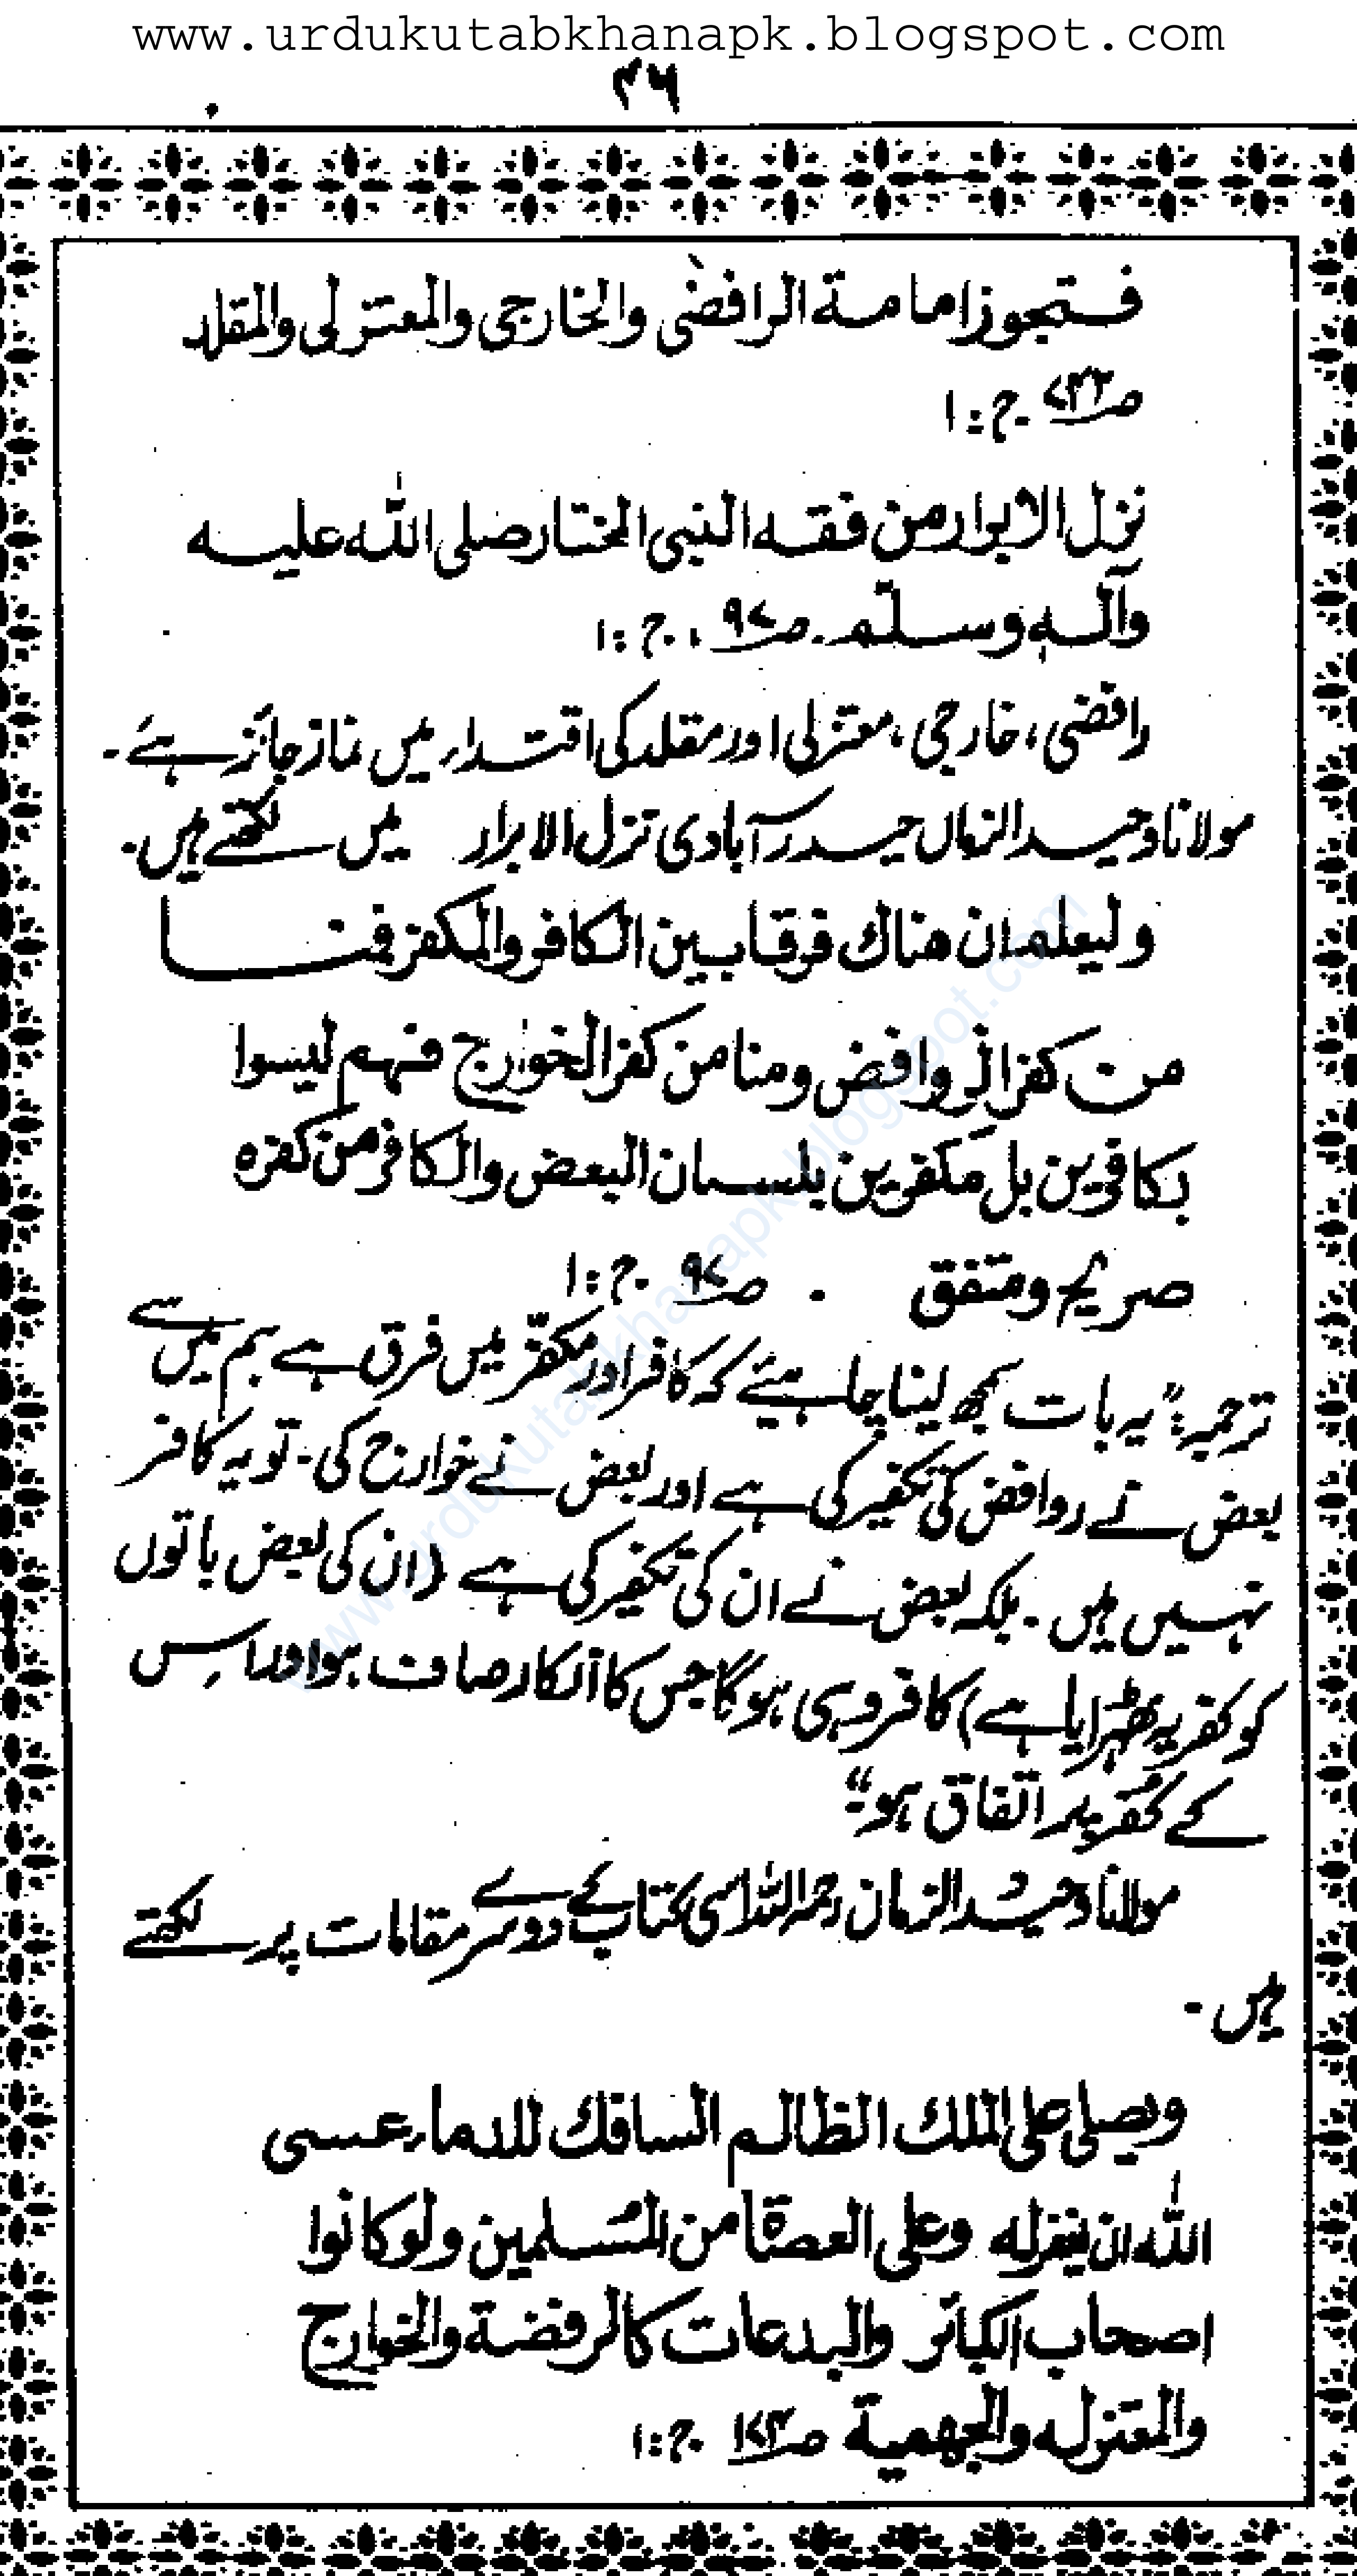 www.urdukutabkhanapk.blogspot.com
۳۶
فتجوز امامة الرافضی والخارجی والمعتزلی والمقلد
ص ۷۳۲ ج : ۱
نزل الابرار من فقه النبی المختار صلی اللہ علیه
وآله وسلم ۔ ص ۹۷ ، ج : ۱
رافضی ، خارجی ، معتزلی اور مقلد کی اقتداء میں نماز جائز ہے ۔
مولانا وحید الزماں حیدر آبادی نزل الابرار میں لکھتے ہیں ۔
ولیعلم ان هناك فرقا بین الکافر والمکفر فمنا
من کفر الروافض ومنا من کفر الخوارج فهم لیسوا
بکافرین بل مکفرین بلسان البعض والکافر من کفره
صریح ومتفق ۔ ص ۹۷ ج : ۱
ترجمہ : " یہ بات سمجھ لینا چاہیئے کہ کافر اور مکفّر میں فرق ہے ہم میں سے
بعض نے روافض کی تکفیر کی ہے اور بعض نے خوارج کی ۔ تو یہ کافر
نہیں ہیں ۔ بلکہ بعض نے ان کی تکفیر کی ہے (ان کی بعض باتوں
کو کفریہ ٹھہرایا ہے) کافر وہی ہوگا جس کا انکار صاف ہو اور اس
کے کفر پر اتفاق ہو "
مولانا وحید الزمان رحمہ اللہ اسی کتاب کے دوسرے مقامات پر لکھتے
ہیں ۔
ویصلی علی الملك الظالم السافك للدماء عسی
اللہ ان یغفرله وعلی العصاة من المسلمین ولو کانوا
اصحاب الکبائر والبدعات کالرفضة والخوارج
والمعتزله والجهمیة ص ۱۷۳ ج : ۱
www.urdukutabkhanapk.blogspot.com